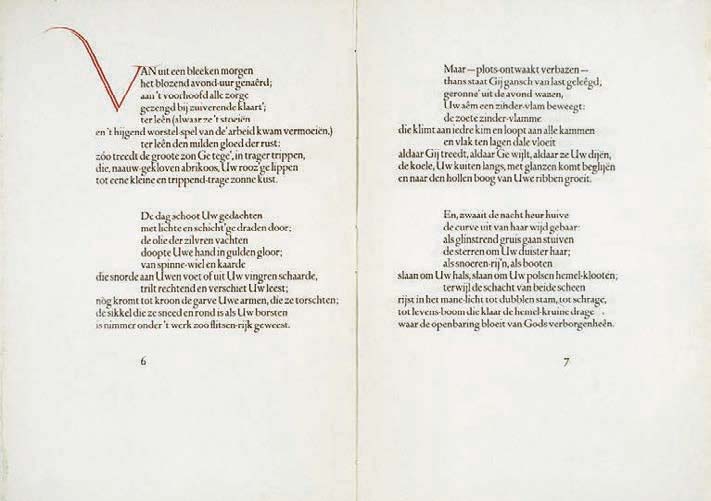 VAN uit een bleeken morgen
het blozend avond-uur genaêrd;
aan 't voorhoofd alle zorge
gezengd bij zuiverende klaart';
ter leên (alwaar ze 't stoeien
en 't hijgend worstel-spel van de' arbeid kwam vermoeien,)
ter leên den milden gloed der rust:
zóo treedt de groote zon Ge tege', in trager trippen,
die, naauw-gekloven abrikoos, Uw rooz'ge lippen
tot eene kleine en trippend-trage zonne kust.
De dag schoot Uw gedachten
met lichte en schicht'ge draden door;
de olie der zilvren vachten
doopte Uwe hand in gulden gloor;
van spinne-wiel en kaarde
die snorde aan Uwen voet of uit Uw vingren schaarde,
trilt rechtend en verschiet Uw leest;
nòg kromt tot kroon de garve Uwe armen, die ze torschten;
de sikkel die ze sneed en rond is als Uw borsten
is nimmer onder 't werk zoo flitsen-rijk geweest.
6
Maar — plots-ontwaakt verbazen —
thans staat Gij gansch van last geleêgd;
geronne' uit de avond-wazen,
Uw aêm een zinder-vlam beweegt:
de zoete zinder-vlamme
die klimt aan iedre kim en loopt aan alle kammen
en vlak ten lagen dale vloeit
aldaar Gij treedt, aldaar Ge wijlt, aldaar ze Uw dijen,
de koele, Uw kuiten langs, met glanzen komt beglijên
en naar den hollen boog van Uwe ribben groeit.
En, zwaait de nacht heur huive
de curve uit van haar wijd gebaar:
als glinstrend gruis gaan stuiven
de sterren om Uw duister haar;
als snoeren-rij'n, als booten
slaan om Uw hals, slaan om Uw polsen hemel-klooten;
terwijl de schacht van beide scheen
rijst in het mane-licht tot dubblen stam, tot schrage,
tot levens-boom die klaar de hemel-kruine drage
waar de openbaring bloeit van Gods verborgenheên.
7